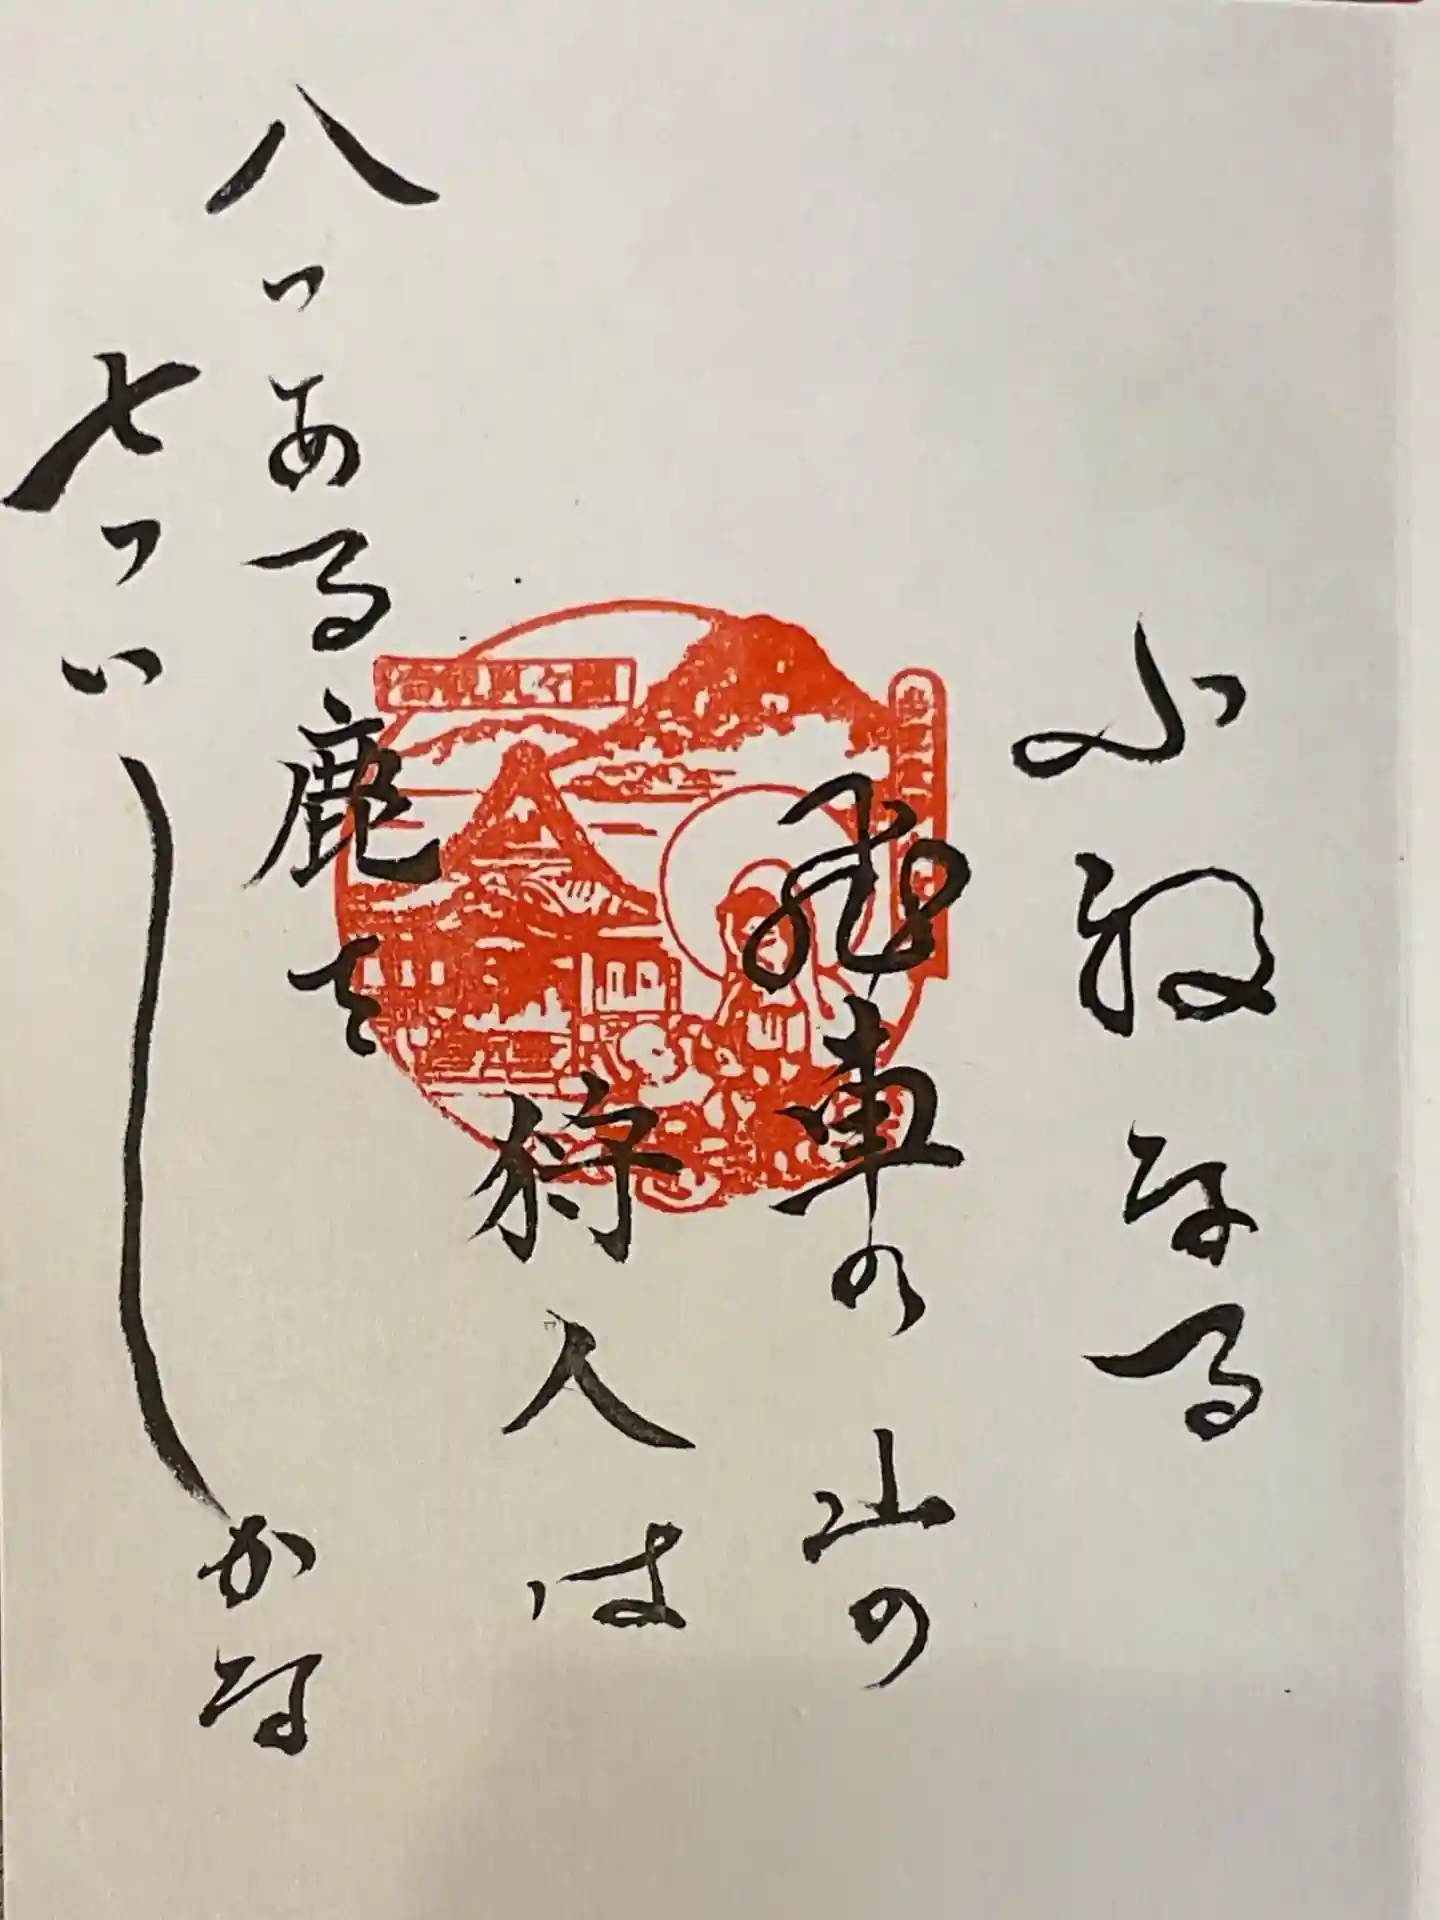 ふねなる
飛車の山の
狩人は
八つある鹿を
七ついしかな